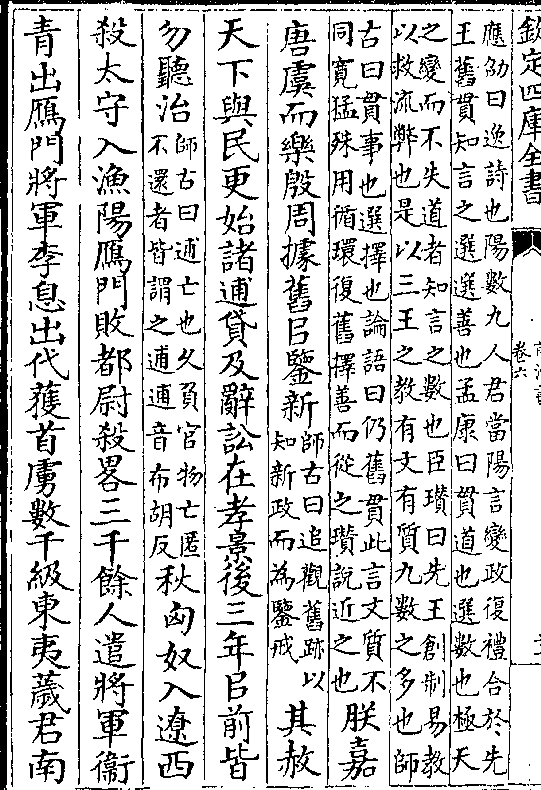 欽定四庫全書
卷六
應劭曰逸詩也陽數九人君當陽言變政復禮合於先
王舊貫知言之選選善也孟康曰貫道也選數也極天
之變而不失道者知言之數也臣瓚曰先王創制易教
以救流弊也是以三王之教有文有質九數之多也師
古曰貫事也選擇也論語曰仍舊貫此言文質不
同寬猛殊用循環復舊擇善而從之瓚說近之也
朕嘉
唐虞而樂殷周據舊㠯鑒新
師古曰追觀舊跡以
知新政而為鑒戒
其赦
天下與民更始諸逋貸及辭訟在孝景後三年㠯前皆
勿聽治
師古曰逋亡也久負官物亡匿
不還者皆謂之逋逋音布胡反
秋匈奴入遼西
殺太守入漁陽鴈門敗都尉殺畧三千餘人遣將軍衞
青出鴈門將軍李息出代獲首虜數千級東夷薉君南